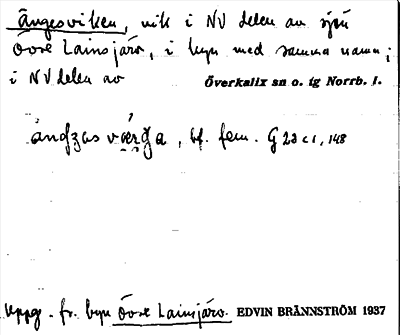 Ängesviken, vik i NV delen av sjön
Övre Lainsjärv, i byn med samma namn;
i NV delen av Överkalix sn o. tg Norrb. l.
bf. fem. G 23 c 1, 148
Uppg. fr. byn Övre Lainsjärv. EDVIN BRÄNNSTRÖM 1937